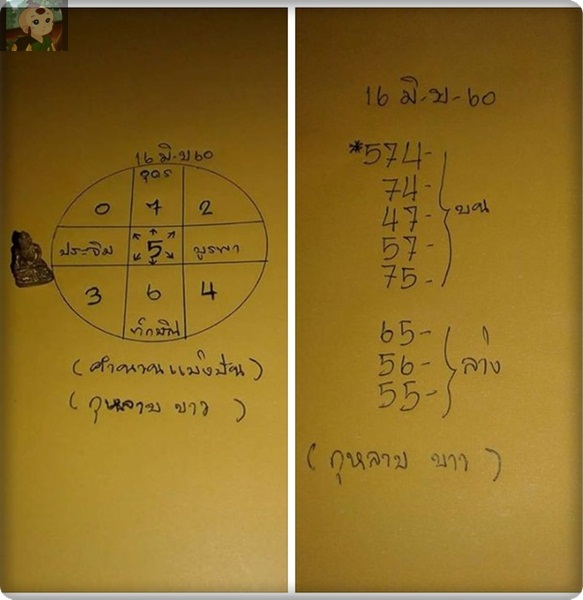 16 มิ.ย 60
อุดร
0 7 2
ประจิม 5 บูรพา
3 6 4
ทักษิณ
(คำนวนแบ่งปัน)
(กุหลาบ ขาว)
16 มิ-ย-60
*574-
74-
47-
57-
75-
บน
65-
56-
55-
ล่าง
(กุหลาบ ขาว)